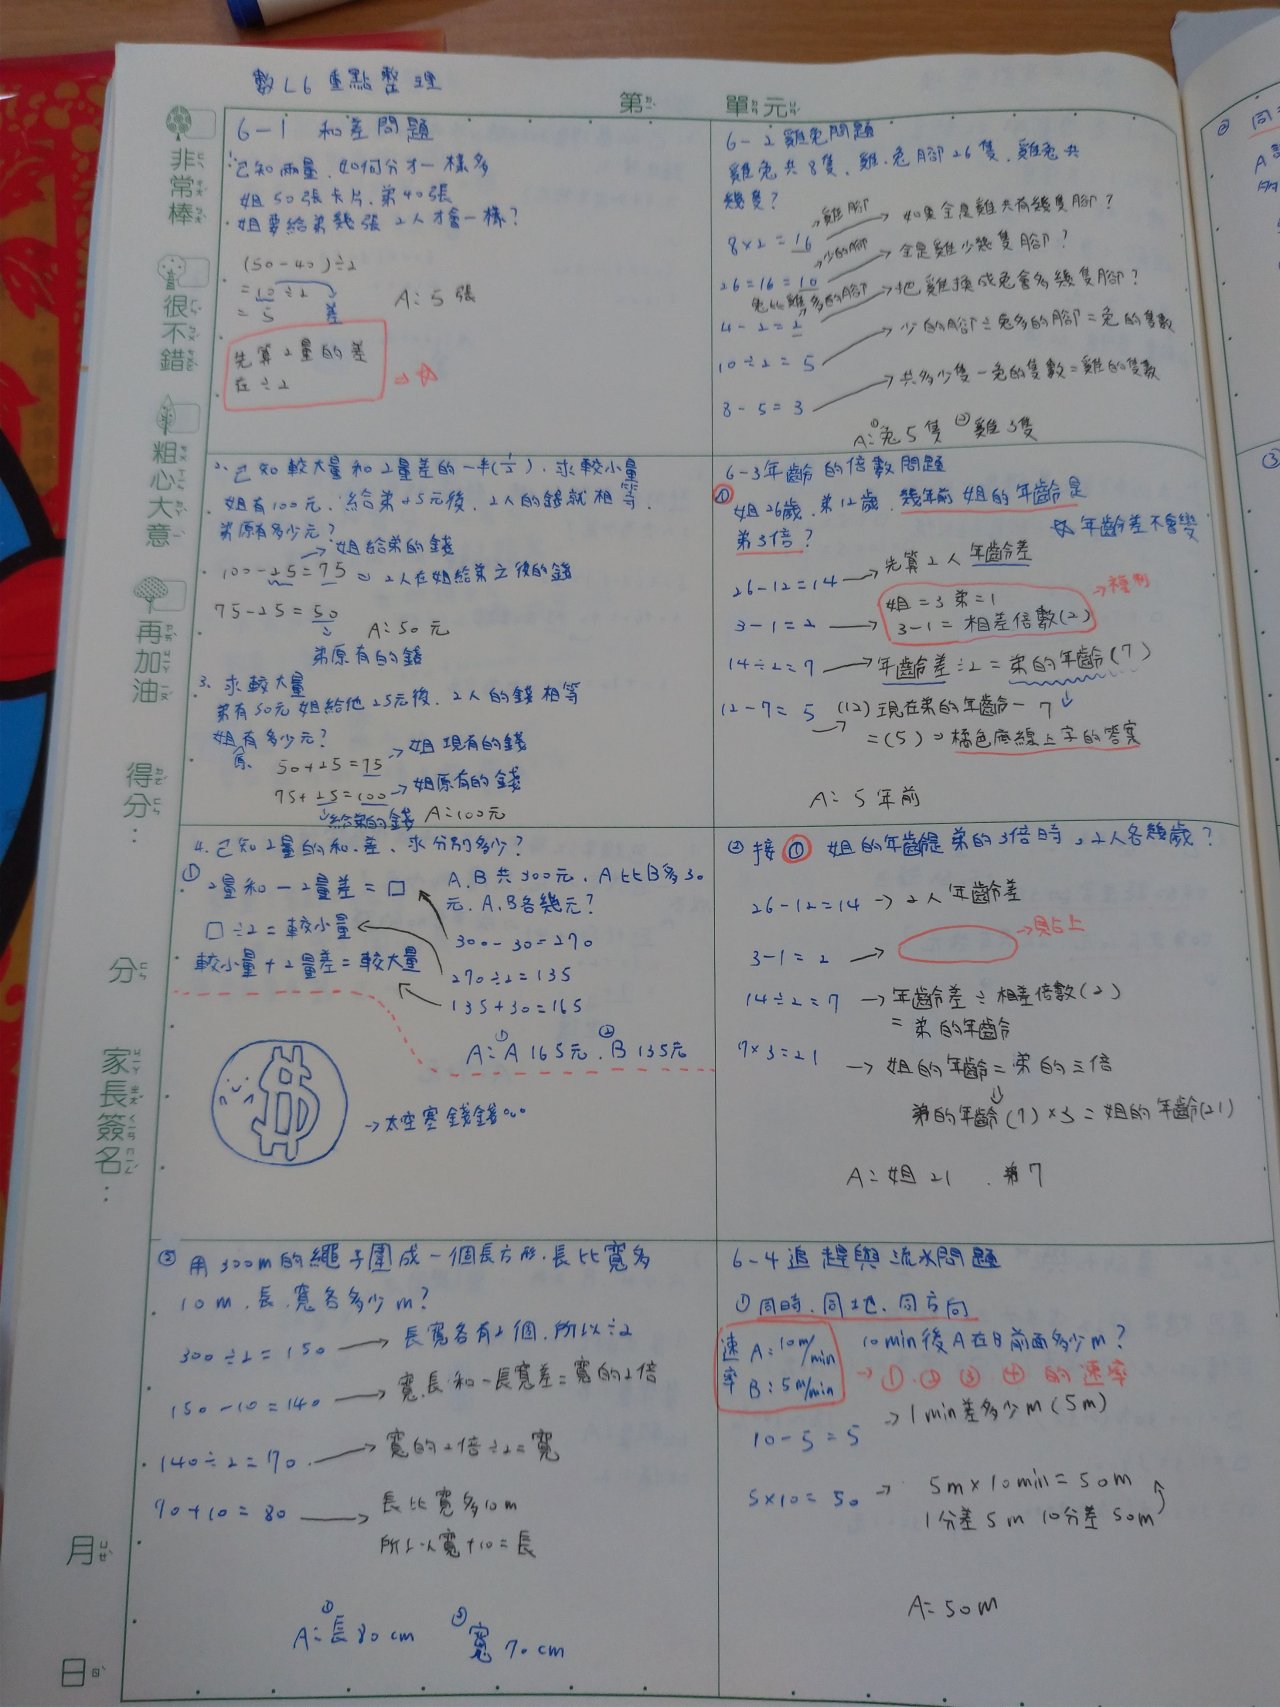 數L6重點整理
第 單元
非常棒
很不錯
粗心大意
再加油
得分:
分
家長簽名:
月
日
6-1 和差問題
1.已知兩量,如何分才一樣多
姐50張卡片,弟40張
姐要給弟幾張2人才會一樣?
(50-40)÷2
=10÷2
=5
差
A:5張
先算2量的差
在÷2
2.已知較大量和2量差的一半(1/2),求較小量
姐有100元,給弟25元後,2人的錢就相等,
弟原有多少元?
→姐給弟的錢
100-25=75 → 2人在姐給弟之後的錢
75-25=50
A:50元
弟原有的錢
3.求較大量
弟有50元姐給他25元後,2人的錢相等
姐原有多少元?
50+25=75 →姐現有的錢
75+25=100 →姐原有的錢
→給弟的錢 A:100元
4.已知2量的和、差,求分別多少?
① 2量和-2量差=□
□÷2=較小量
較小量+2量差=較大量
A、B共300元,A比B多30
元,A、B各幾元?
300-30=270
270÷2=135
135+30=165
A:①A 165元,②B 135元
→太空塞錢錢
② 用300m的繩子圍成一個長方形,長比寬多
10m,長、寬各多少m?
300÷2=150 → 長寬各有2個,所以÷2
150-10=140 → 寬、長和-長寬差=寬的2倍
140÷2=70 → 寬的2倍÷2=寬
70+10=80 → 長比寬多10m
所以寬+10=長
A:①長80cm ②寬70cm
6-2 雞兔問題
雞兔共8隻,雞、兔腳26隻,雞兔共
幾隻?
8×2=16 →雞腳 → 如果全是雞共有幾隻腳?
26=16=10 →少的腳 → 全是雞少幾隻腳?
兔比雞多的腳
4-2=2 → 把雞換成兔會多幾隻腳?
10÷2=5 → 少的腳÷兔多的腳=兔的隻數
8-5=3 → 共多少隻-兔的隻數=雞的隻數
A:①兔5隻 ②雞3隻
6-3年齡的倍數問題
① 姐26歲,弟12歲,幾年前姐的年齡是
弟3倍? 年齡差不會變
26-12=14 → 先算2人年齡差
3-1=2 → 姐=3 弟=1
3-1=相差倍數(2)
→複制
14÷2=7 → 年齡差÷2=弟的年齡(7)
12-7=5 → (12)現在弟的年齡-7
=(5)→橘色底線上字的答案
A:5年前
② 接① 姐的年齡是弟的3倍時,2人各幾歲?
26-12=14 → 2人年齡差
3-1=2 → →貼上
14÷2=7 → 年齡差÷相差倍數(2)
=弟的年齡
7×3=21 → 姐的年齡=弟的三倍
弟的年齡(7)×3=姐的年齡(21)
A:姐21、弟7
6-4追趕與流水問題
① 同時、同地、同方向
速率 A:10m/min
B:5m/min
10min後A在B前面多少m?
→①、②、③、④的速率
10-5=5 →1min差多少m(5m)
5×10=50 → 5m×10min=50m
1分差5m 10分差50m
A:50m
② 同
A
③